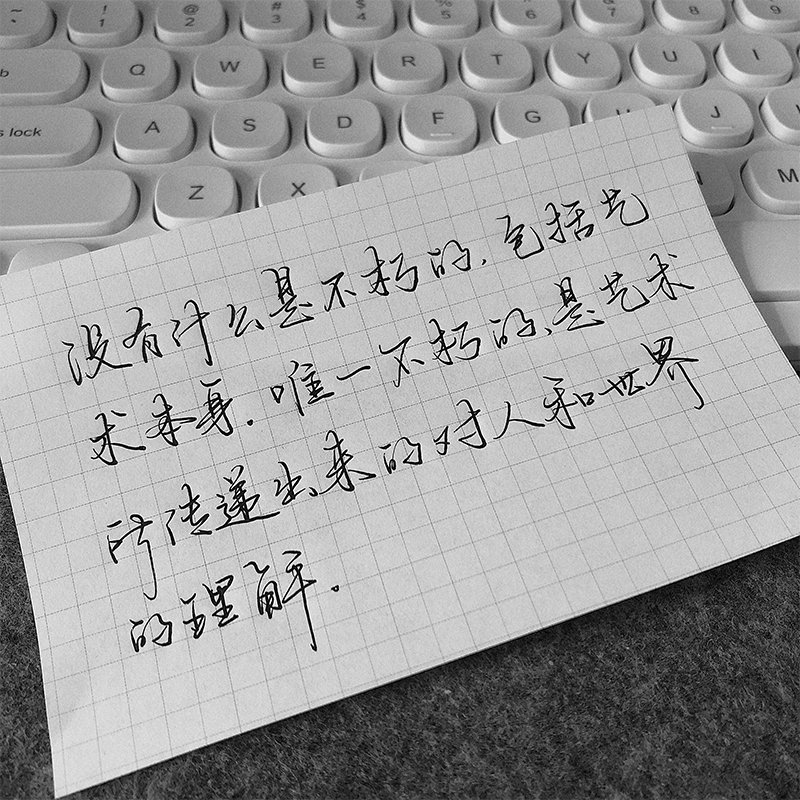 ~ ! 1 @ 2 # 3 $ 4 % 5 ^ 6 & 7 * 8 9
b Q W E R T Y U I
s lock A S D F G H J
Z X N M
没有什么是不朽的,包括艺
术本身.唯一不朽的,是艺术
所传递出来的对人和世界
的理解.